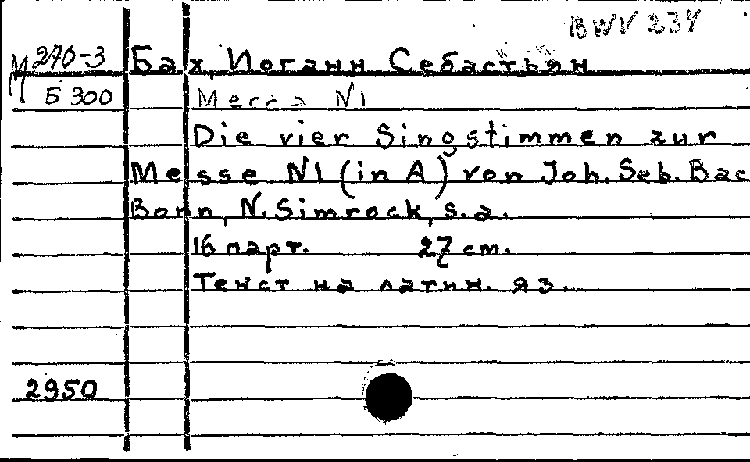 BWV 234
М 270-3 Бах, Иоганн Себастьян
Б 300 Месса N1
Die vier Singstimmen zur
Messe N1 (in A) von Joh. Seb. Bac
Bonn, N. Simrock, s.a.
16 парт. 27 cm.
Текст на латин. яз.
2950